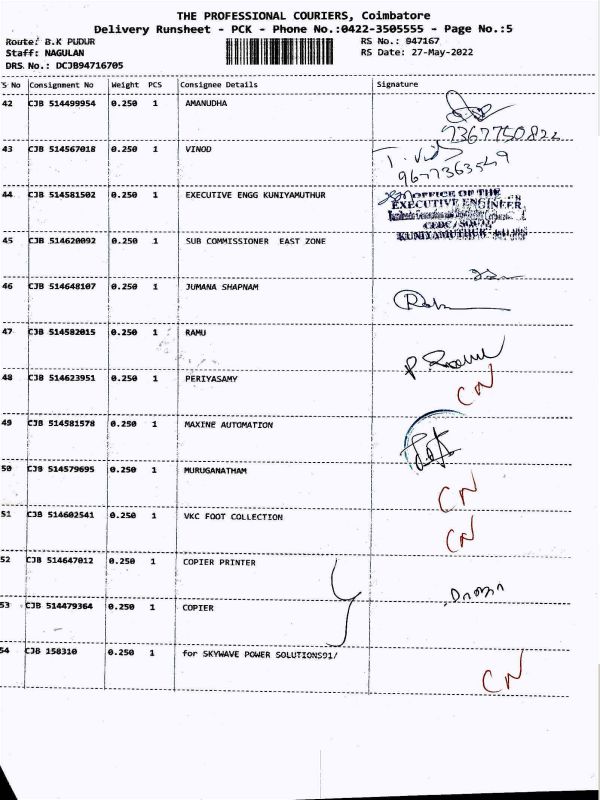 THE PROFESSIONAL COURIERS, Coimbatore
Delivery Runsheet - PCK - Phone No.:0422-3505555 - Page No.:5
Route: B.K PUDUR RS No.: 947167
Staff: NAGULAN RS Date: 27-May-2022
DRS No.: DCJB94716705
S No Consignment No Weight PCS Consignee Details Signature
42 CJB 514499954 0.250 1 AMANUDHA
7367750822
43 CJB 514567018 0.250 1 VINOD
9677363549
44 CJB 514581502 0.250 1 EXECUTIVE ENGG KUNIYAMUTHUR
OFFICE OF THE
EXECUTIVE ENGINEER
CEDC / SOUTH
KUNIYAMUTHUR
45 CJB 514620092 0.250 1 SUB COMMISSIONER EAST ZONE
46 CJB 514648107 0.250 1 JUMANA SHAPNAM
47 CJB 514582015 0.250 1 RAMU
48 CJB 514623951 0.250 1 PERIYASAMY
CN
49 CJB 514581578 0.250 1 MAXINE AUTOMATION
50 CJB 514579695 0.250 1 MURUGANATHAM
CN
51 CJB 514602541 0.250 1 VKC FOOT COLLECTION
CN
52 CJB 514647012 0.250 1 COPIER PRINTER
53 CJB 514479364 0.250 1 COPIER
54 CJB 158310 0.250 1 for SKYWAVE POWER SOLUTIONS91/
CN